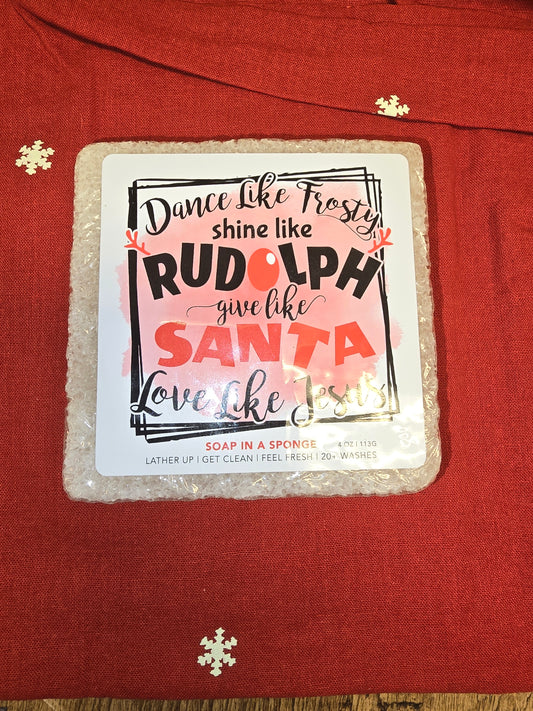 Dance Like Frosty
shine like
RUDOLPH
give like
SANTA
Love Like Jesus
SOAP IN A SPONGE 4 OZ | 113G
LATHER UP | GET CLEAN | FEEL FRESH | 20+ WASHES